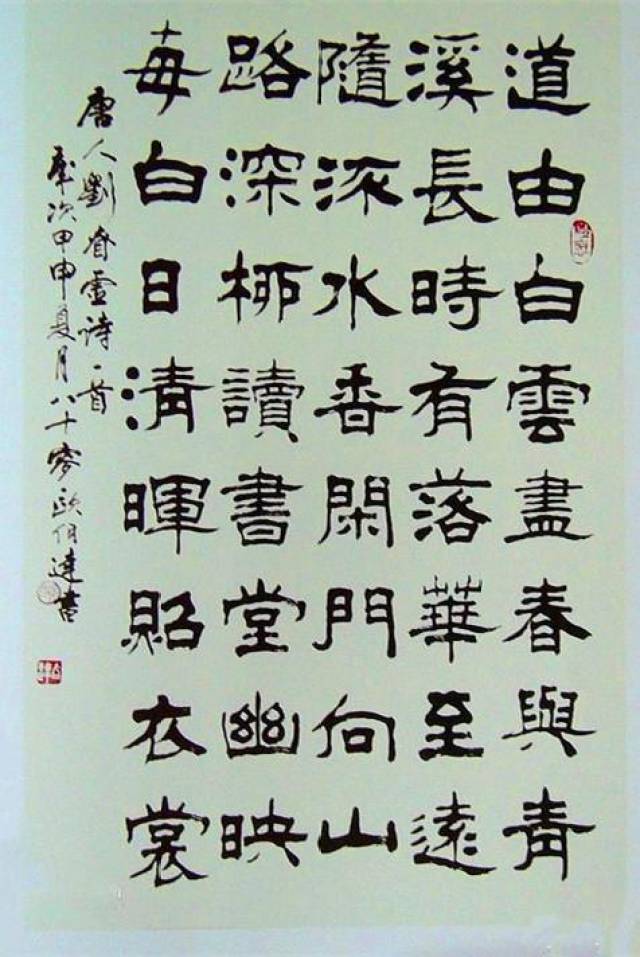 道由白雲盡春與青
溪長時有落華至遠
隨流水香閑門向山
路深柳讀書堂幽映
每白日清暉照衣裳
唐人劉眘虛诗一首
歲次甲申夏月八十零歐伯達書